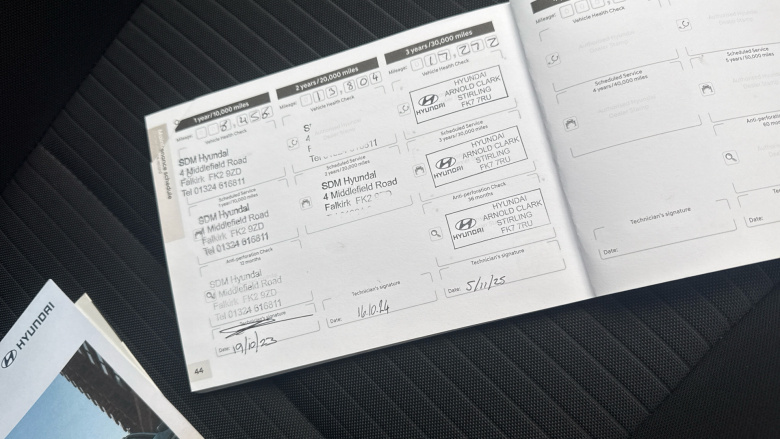 1 year/10,000 miles
Mileage:
8,456
Vehicle Health Check
SDM Hyundai
4 Middlefield Road
Falkirk FK2 9ZD
Tel 01324 616811
Scheduled Service
1 year/10,000 miles
SDM Hyundai
4 Middlefield Road
Falkirk FK2 9ZD
Tel 01324 616811
Anti-perforation Check
12 months
SDM Hyundai
4 Middlefield Road
Falkirk FK2 9ZD
Tel 01324 616811
Technician's signature
Date: 19/10/23
44
2 years/20,000 miles
Mileage:
13,804
Vehicle Health Check
Scheduled Service
2 years/20,000 miles
SDM Hyundai
4 Middlefield Road
Falkirk FK2 9ZD
Technician's signature
Date: 16.10.24
3 years/30,000 miles
Mileage:
17,272
Vehicle Health Check
HYUNDAI
ARNOLD CLARK
STIRLING
FK7 7RU
HYUNDAI
Scheduled Service
3 years/30,000 miles
HYUNDAI
ARNOLD CLARK
STIRLING
FK7 7RU
HYUNDAI
Anti-perforation Check
36 months
HYUNDAI
ARNOLD CLARK
STIRLING
FK7 7RU
HYUNDAI
Technician's signature
Date: 5/11/25
Mileage:
Vehicle Health Check
Scheduled Service
4 years/40,000 miles
Technician's signature
Date:
Scheduled Service
5 years/50,000 miles
Anti-perforation
Technician's
Date:
HYUNDAI